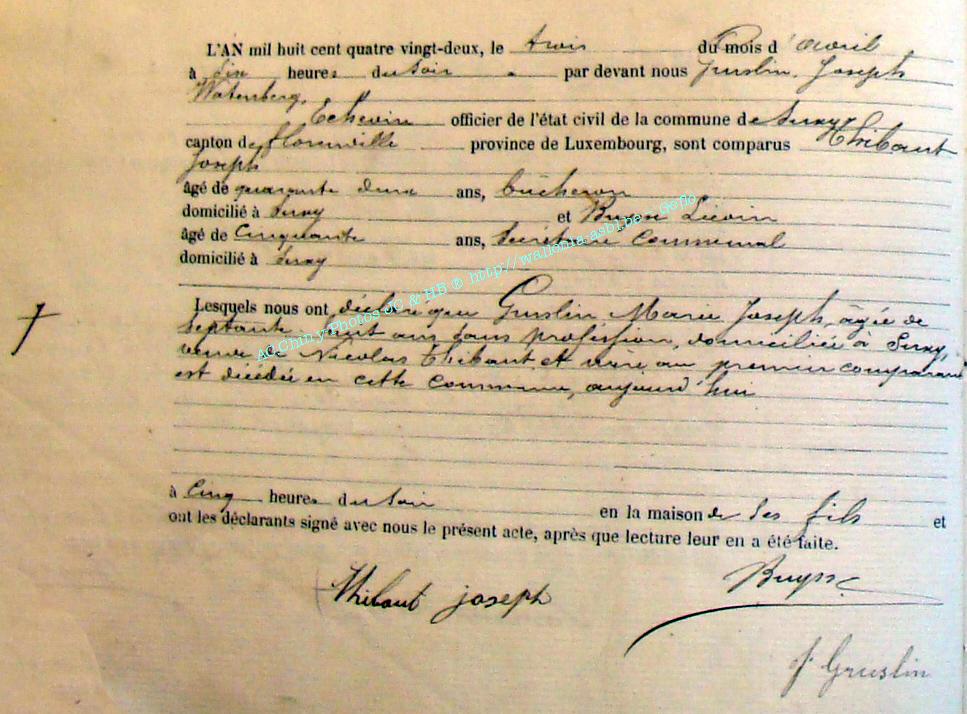 L'AN mil huit cent quatre vingt-deux, le trois du mois d'avril
à six heures du soir par devant nous Gruslin, Joseph
Watenberg,
Echevin officier de l'état civil de la commune de Suxy
canton de florenville province de Luxembourg, sont comparus Thibaut
Joseph
âgé de quarante deux ans, bûcheron
domicilié à Suxy et Buysse Liévin
âgé de Cinquante ans, Secrétaire Communal
domicilié à Suxy
Lesquels nous ont déclaré que Gruslin Marie Joseph, âgée de
septante ans sans profession, domiciliée à Suxy,
veuve de Nicolas Thibaut et mère au premier comparant
est décédée en cette commune, aujourd'hui
à Cinq heures du soir en la maison de ses fils et
ont les déclarants signé avec nous le présent acte, après que lecture leur en a été faite.
Thibaut joseph
Buysse
J. Gruslin
AC Chiny Photos JC & HB ® http://wallonia.asbl.be